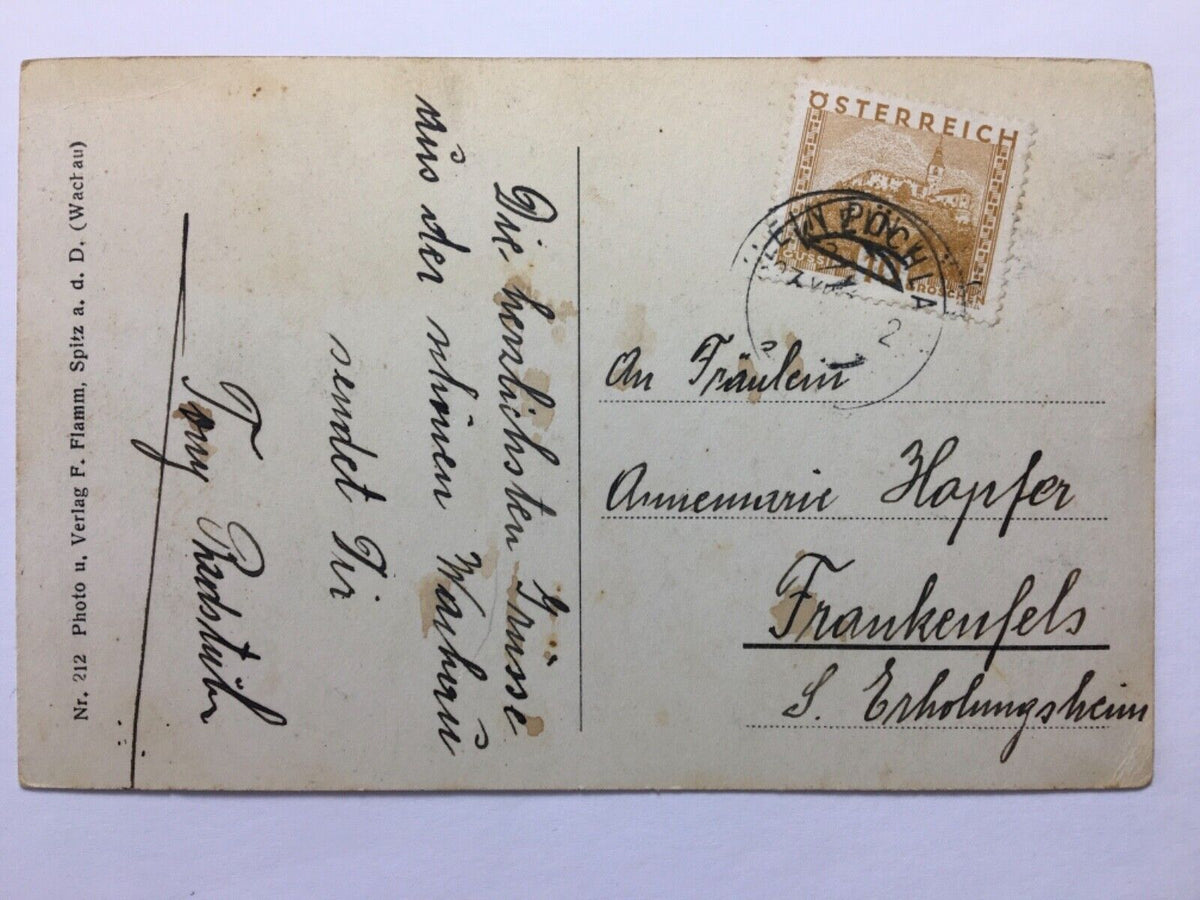 Nr. 212 Photo u. Verlag F. Flamm, Spitz a. d. D. (Wachau)
Die herzlichsten Grüsse
aus der schönen Wachau
sendet Dir
Tony
ÖSTERREICH
GÜSSING
10
GROSCHEN
KLEIN PÖCHLARN
An Fräulein
Annemarie Hopfer
Frankenfels
S. Erholungsheim